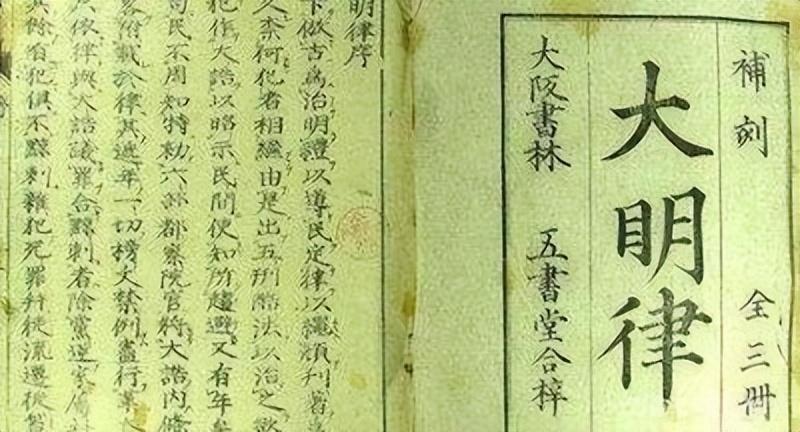 補刻 全三冊
大明律
大阪書林 五書堂合梓
明律序
下倣古爲治明禮以導民定律以繩頑刊著
久奈何犯者相繼由是出五刑酷法以治之欲
犯作大誥以昭示民間使知所趨避又有年矣
司民不周知特勅六部都察院官將大誥內條
附載於律其逓年一切榜文禁例盡行革
依律與大誥議罪合黥刺者除黨逆家屬
其餘有犯俱不黥刺雜犯死罪幷徒流遷徙笞